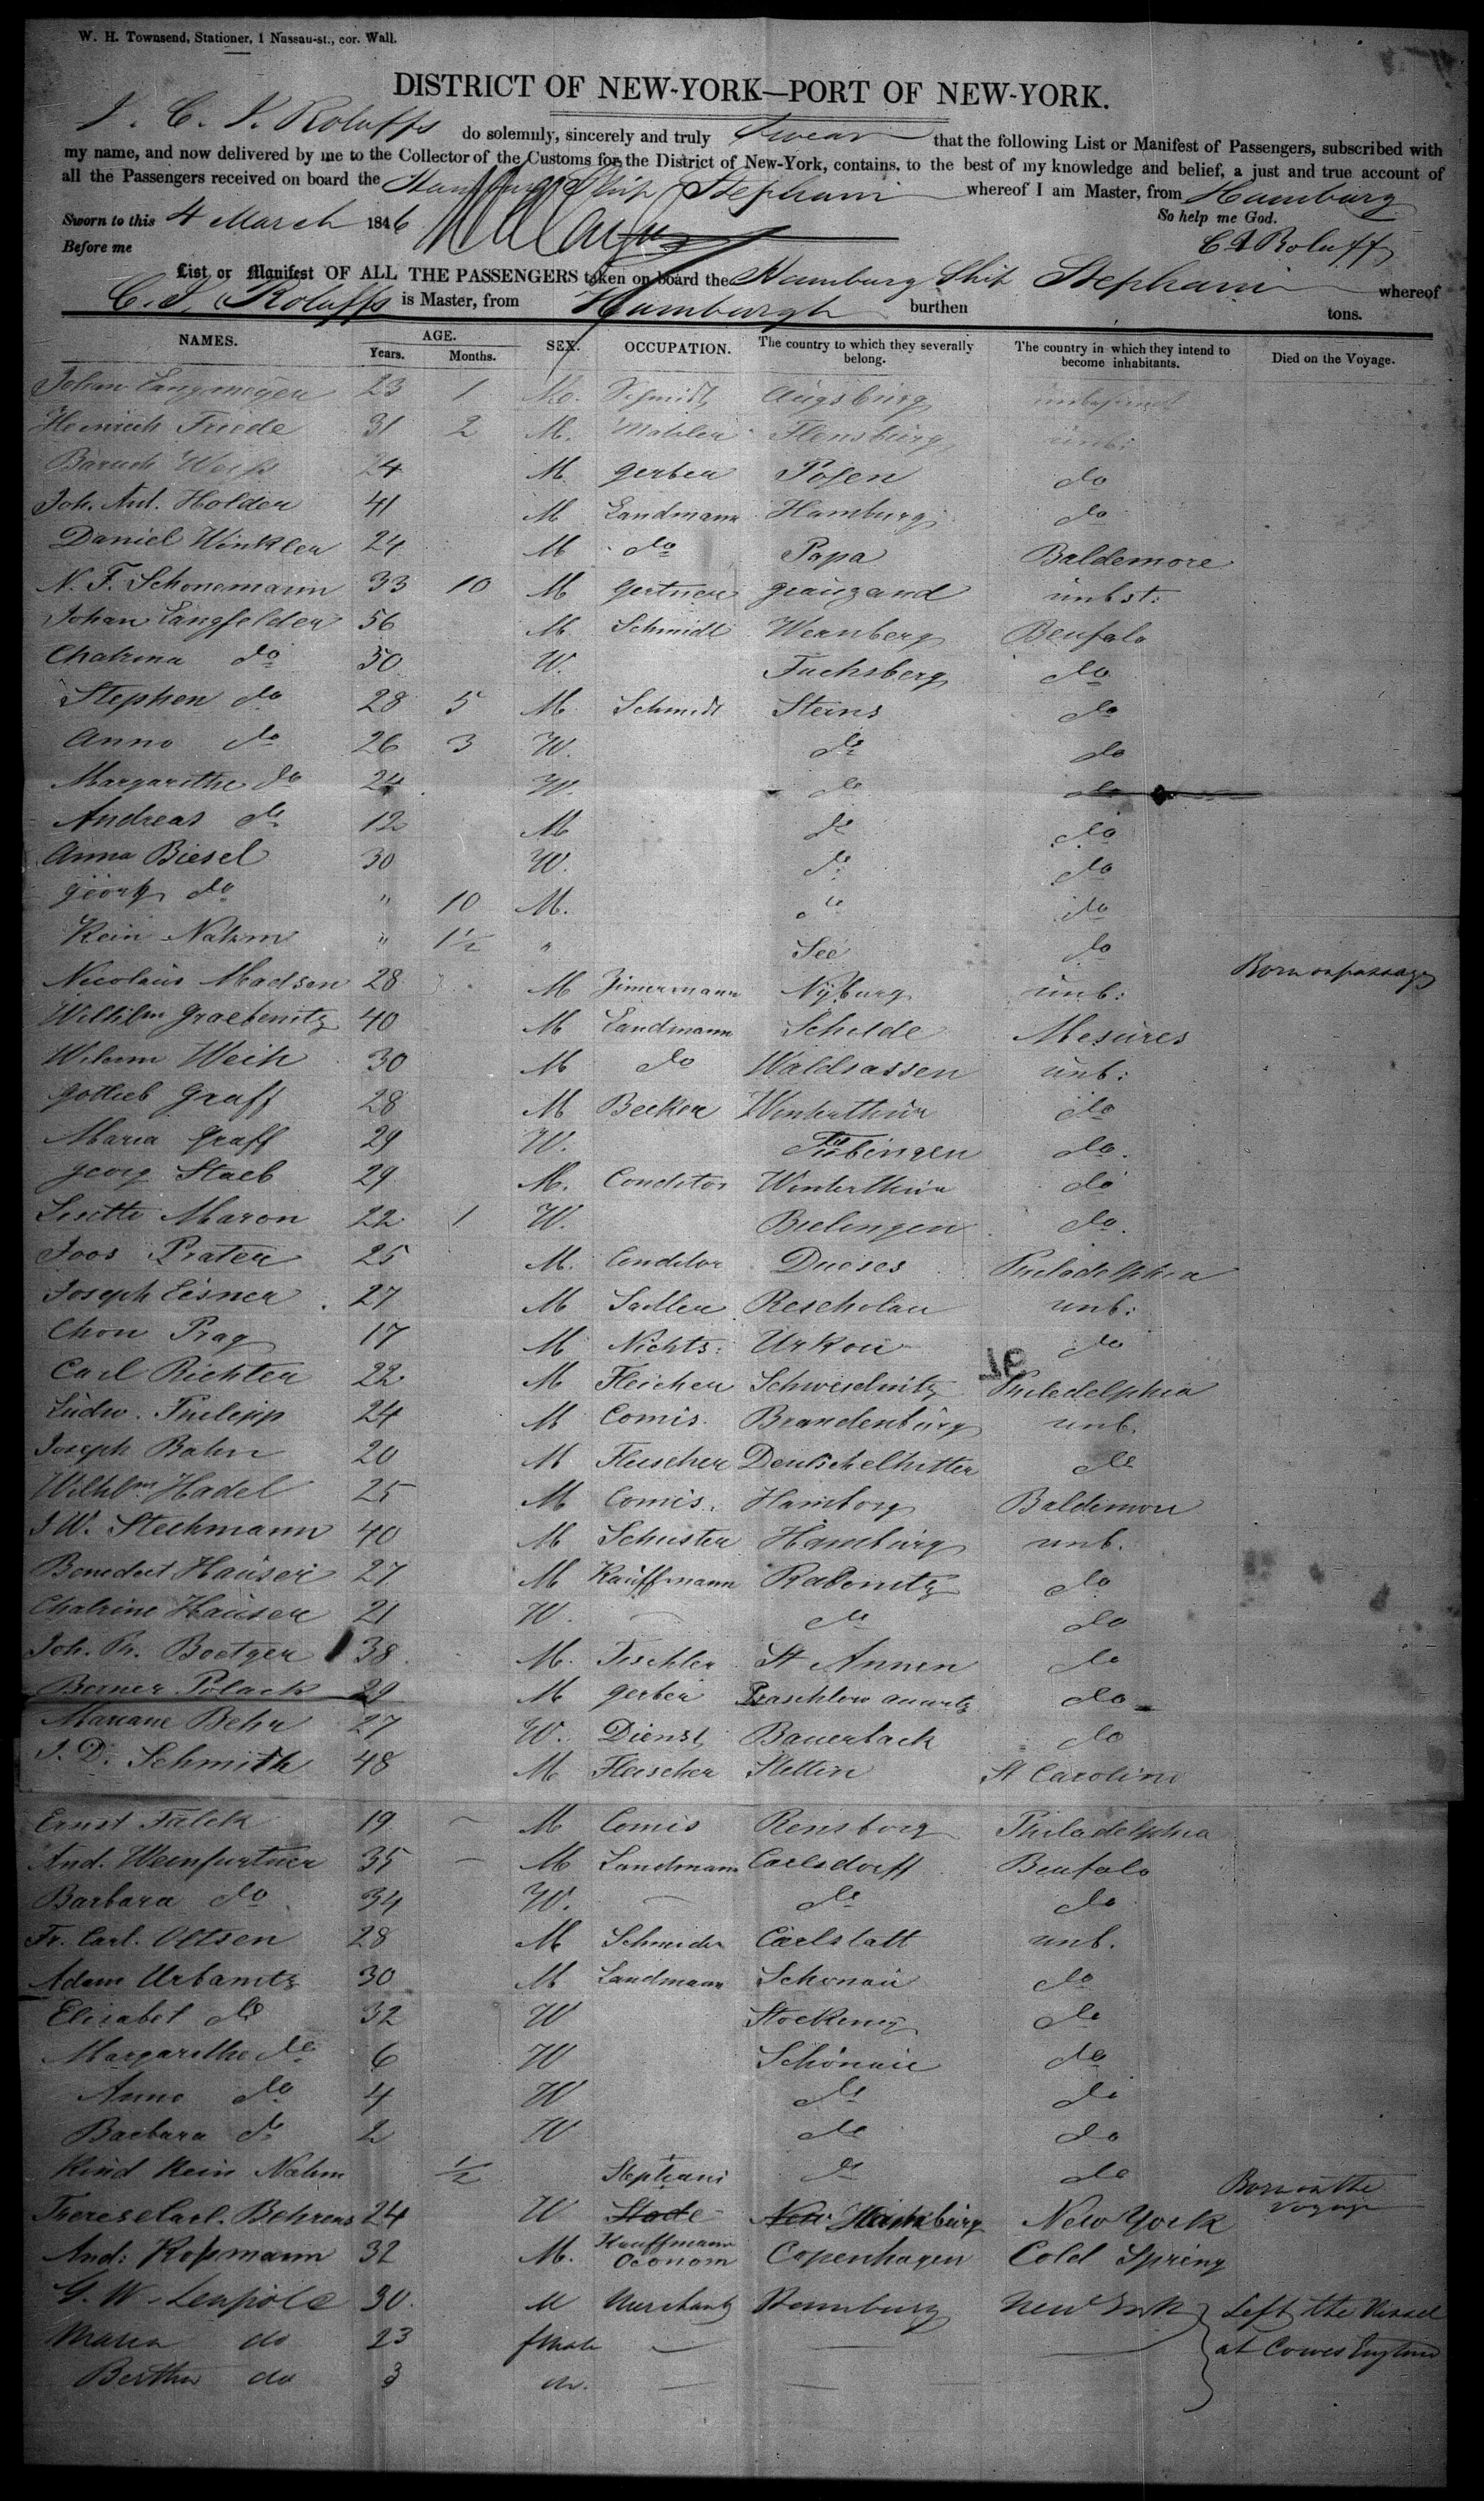 W. H. Townsend, Stationer, 1 Nassau-st., cor. Wall.
DISTRICT OF NEW-YORK—PORT OF NEW-YORK.
I. C. J. Roluffs do solemnly, sincerely and truly swear that the following List or Manifest of Passengers, subscribed with
my name, and now delivered by me to the Collector of the Customs for the District of New-York, contains, to the best of my knowledge and belief, a just and true account of
all the Passengers received on board the Hamburg Ship Stephani whereof I am Master, from Hamburg
Sworn to this 4 March 1846 So help me God.
Before me C J Roluffs
List or Manifest OF ALL THE PASSENGERS taken on board the Hamburg Ship Stephani whereof
C. J. Roluffs is Master, from Hamburgh burthen tons.
NAMES. AGE. Years. Months. SEX. OCCUPATION. The country to which they severally belong. The country in which they intend to become inhabitants. Died on the Voyage.
Johan Langmeyer 23 1 M. Schmidt Augsburg unbestimmt
Heinrich Friede 31 2 M. Mahler Flensburg unb:
Baruch Weiss 24 M. gerber Posen do
Joh. Ant. Holder 41 M Landmann Hamburg do
Daniel Winkler 24 M do Papa Baldemore
N. F. Schonemann 33 10 M gertner grauzand unbst:
Johan Langfelder 56 M Schmidt Wernberg Beufalo
Chatrina do 50 W. Fuchsberg do
Stephen do 28 5 M Schmidt Steins do
Anna do 26 3 W. do do
Margarethe do 24 W. do do
Andreas do 12 M do do
Anna Biesel 30 W. do do
Georg do " 10 M. do do
Kein Nahm " 1½ " See do Born on passage
Nicolaus Madsen 28 M Zimermann Nyburg unb:
Willilm Graebenitz 40 M Landmann Schelde Mesures
Wilhem Weih 30 M do Waldsassen unb:
Gotlieb Graff 28 M Becker Winterthur do
Maria Graff 29 W. Tubingen do.
Georg Staeb 29 M. Conditor Winterthur do
Lisette Maron 22 1 W. Bielingen do.
Joos Prater 25 M. Conditor Dueses Philadelphia
Joseph Eisner 27 M Sadler Rescholau unb:
Chon Prag 17 M Nichts: Urkou do
Carl Richter 22 M Fleicher Schweidnitz Philedelphia
Ludw. Philipp 24 M Comis. Brandenburg unb.
Joseph Bahn 20 M Fleischer Deutschelhitter do
Wilhlm. Hadel 25 M Comis. Hamborg Baldimore
J W. Stechmann 40 M Schuster Hamburg unb.
Benedict Hauser 27 M Kauffmann Rabonitz do
Chatrine Hauser 21 W. do do
Joh. Pr. Boetger 38 M. Tischler St Annen do
Berner Polack 29 M gerber Praschlow do
Mariane Behr 27 W. Dienst Bauerback do
J. D. Schmith 48 M Fleischer Stettin St Carolina
Ernst Falck 19 M Comis Rensborg Philadelphia
And. Weinfurtner 35 M Landmann Carlsdorff Beufalo
Barbara do 34 W. do do
Fr. Carl. Oltsen 28 M Schneider Carlstatt unb.
Adam Urbanitz 30 M Landmann Schonau do
Elisabet do 32 W Stockenig do
Margarethe do 6 W Schönau do
Anna do 4 W do do
Barbara do 2 W do do
Kind Kein Nahm ½ Stephani do do Born on the Voyage
Therese Carl. Behrens 24 W Stade New Hamburg New York
And: Kopmann 32 M. Kauffmann Oconom Copenhagen Cold Spring
G. W. Leupold 30. M Merchant Hamburg New York Left the Vessel
Maria do 23 female at Cowes England
Bertha do 3 do.